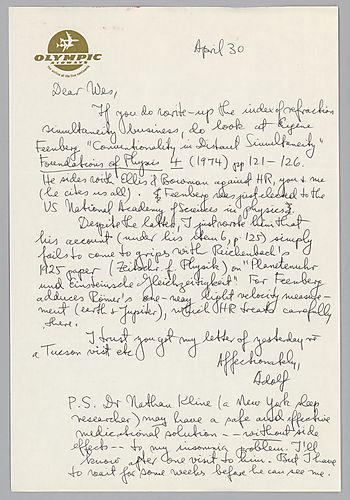 OLYMPIC
AIRWAYS
April 30
Dear Wes,
If you do write-up the index of refraction
simultaneity business, do look at Eugene
Feenberg "Conventionality in Distant Simultaneity"
Foundations of Physics 4 (1974) pp 121-126.
He sides with Ellis & Bowman against HR, you & me
(he cites us all). Feenberg was just elected to the
US National Academy of Sciences in physics.
Despite the latter, I just wrote him that
his account (under his item b, p. 125) simply
fails to come to grips with Reichenbach's
1925 paper (Zeitschr. f. Physik) on "Planetenuhr
und Einsteinsche Gleichzeitigkeit" For Feenberg
adduces Römer's one-way light velocity measure-
ment (earth & Jupiter), which HR treats carefully
there.
I trust you got my letter of yesterday re
a Tucson visit etc
Affectionately,
Adolf
P.S. Dr Nathan Kline (a New York sleep
researcher) may have a safe and effective
medicational solution -- without side
effects -- to my insomnia problem. I'll
know after one visit to him. But I have
to wait for some weeks before he can see me.